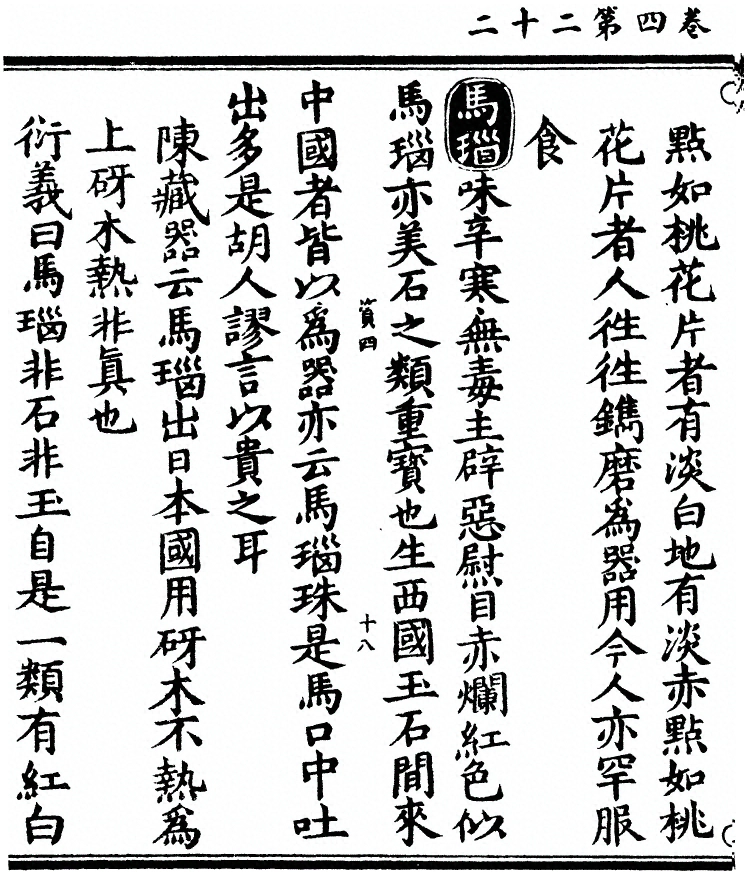 卷四第二十二
點如桃花片者有淡白地有淡赤點如桃
花片者人徃徃鐫磨爲器用今人亦罕服
食
馬瑙味辛寒無毒主辟惡熨目赤爛紅色似
馬瑙亦美石之類重寶也生西國玉石間來
質四 十八
中國者皆以爲器亦云馬瑙珠是馬口中吐
出多是胡人謬言以貴之耳
陳藏器云馬瑙出日本國用砑木不熱爲
上砑木熱非眞也
衍義曰馬瑙非石非玉自是一類有紅白